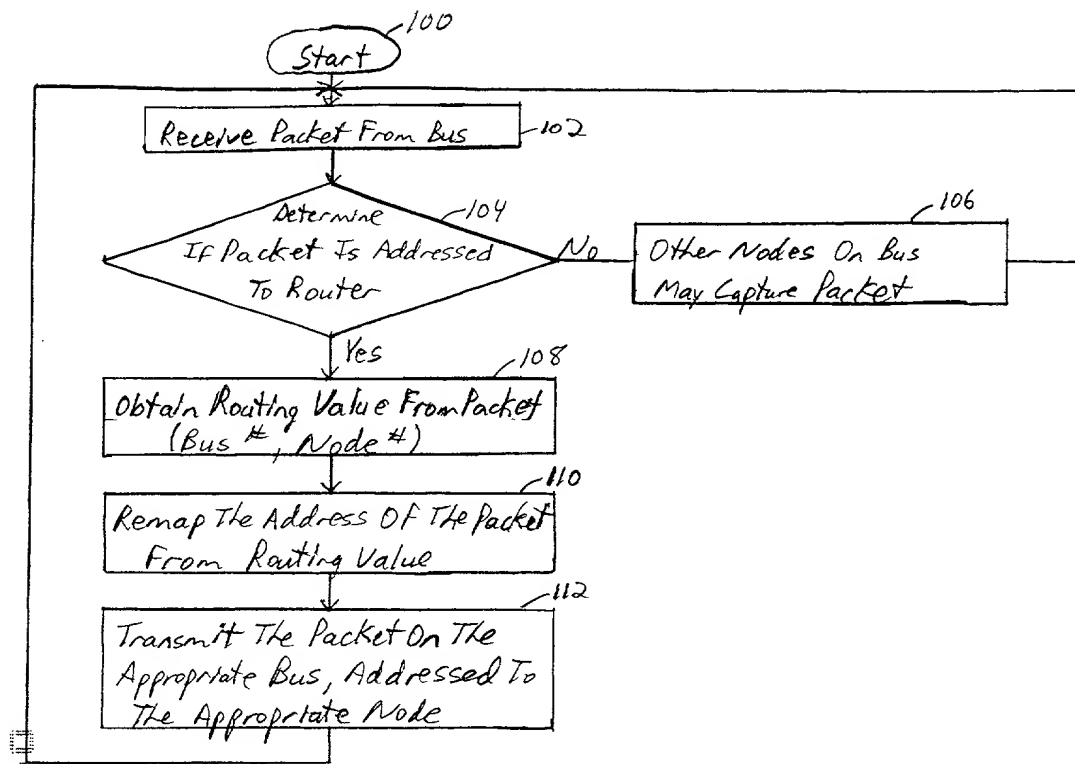 100
Start
Receive Packet From Bus
102
Determine
If Packet Is Addressed
To Router
104
No
106
Other Nodes On Bus
May Capture Packet
Yes
108
Obtain Routing Value From Packet
(Bus #, Node #)
110
Remap The Address Of The Packet
From Routing Value
112
Transmit The Packet On The
Appropriate Bus, Addressed To
The Appropriate Node